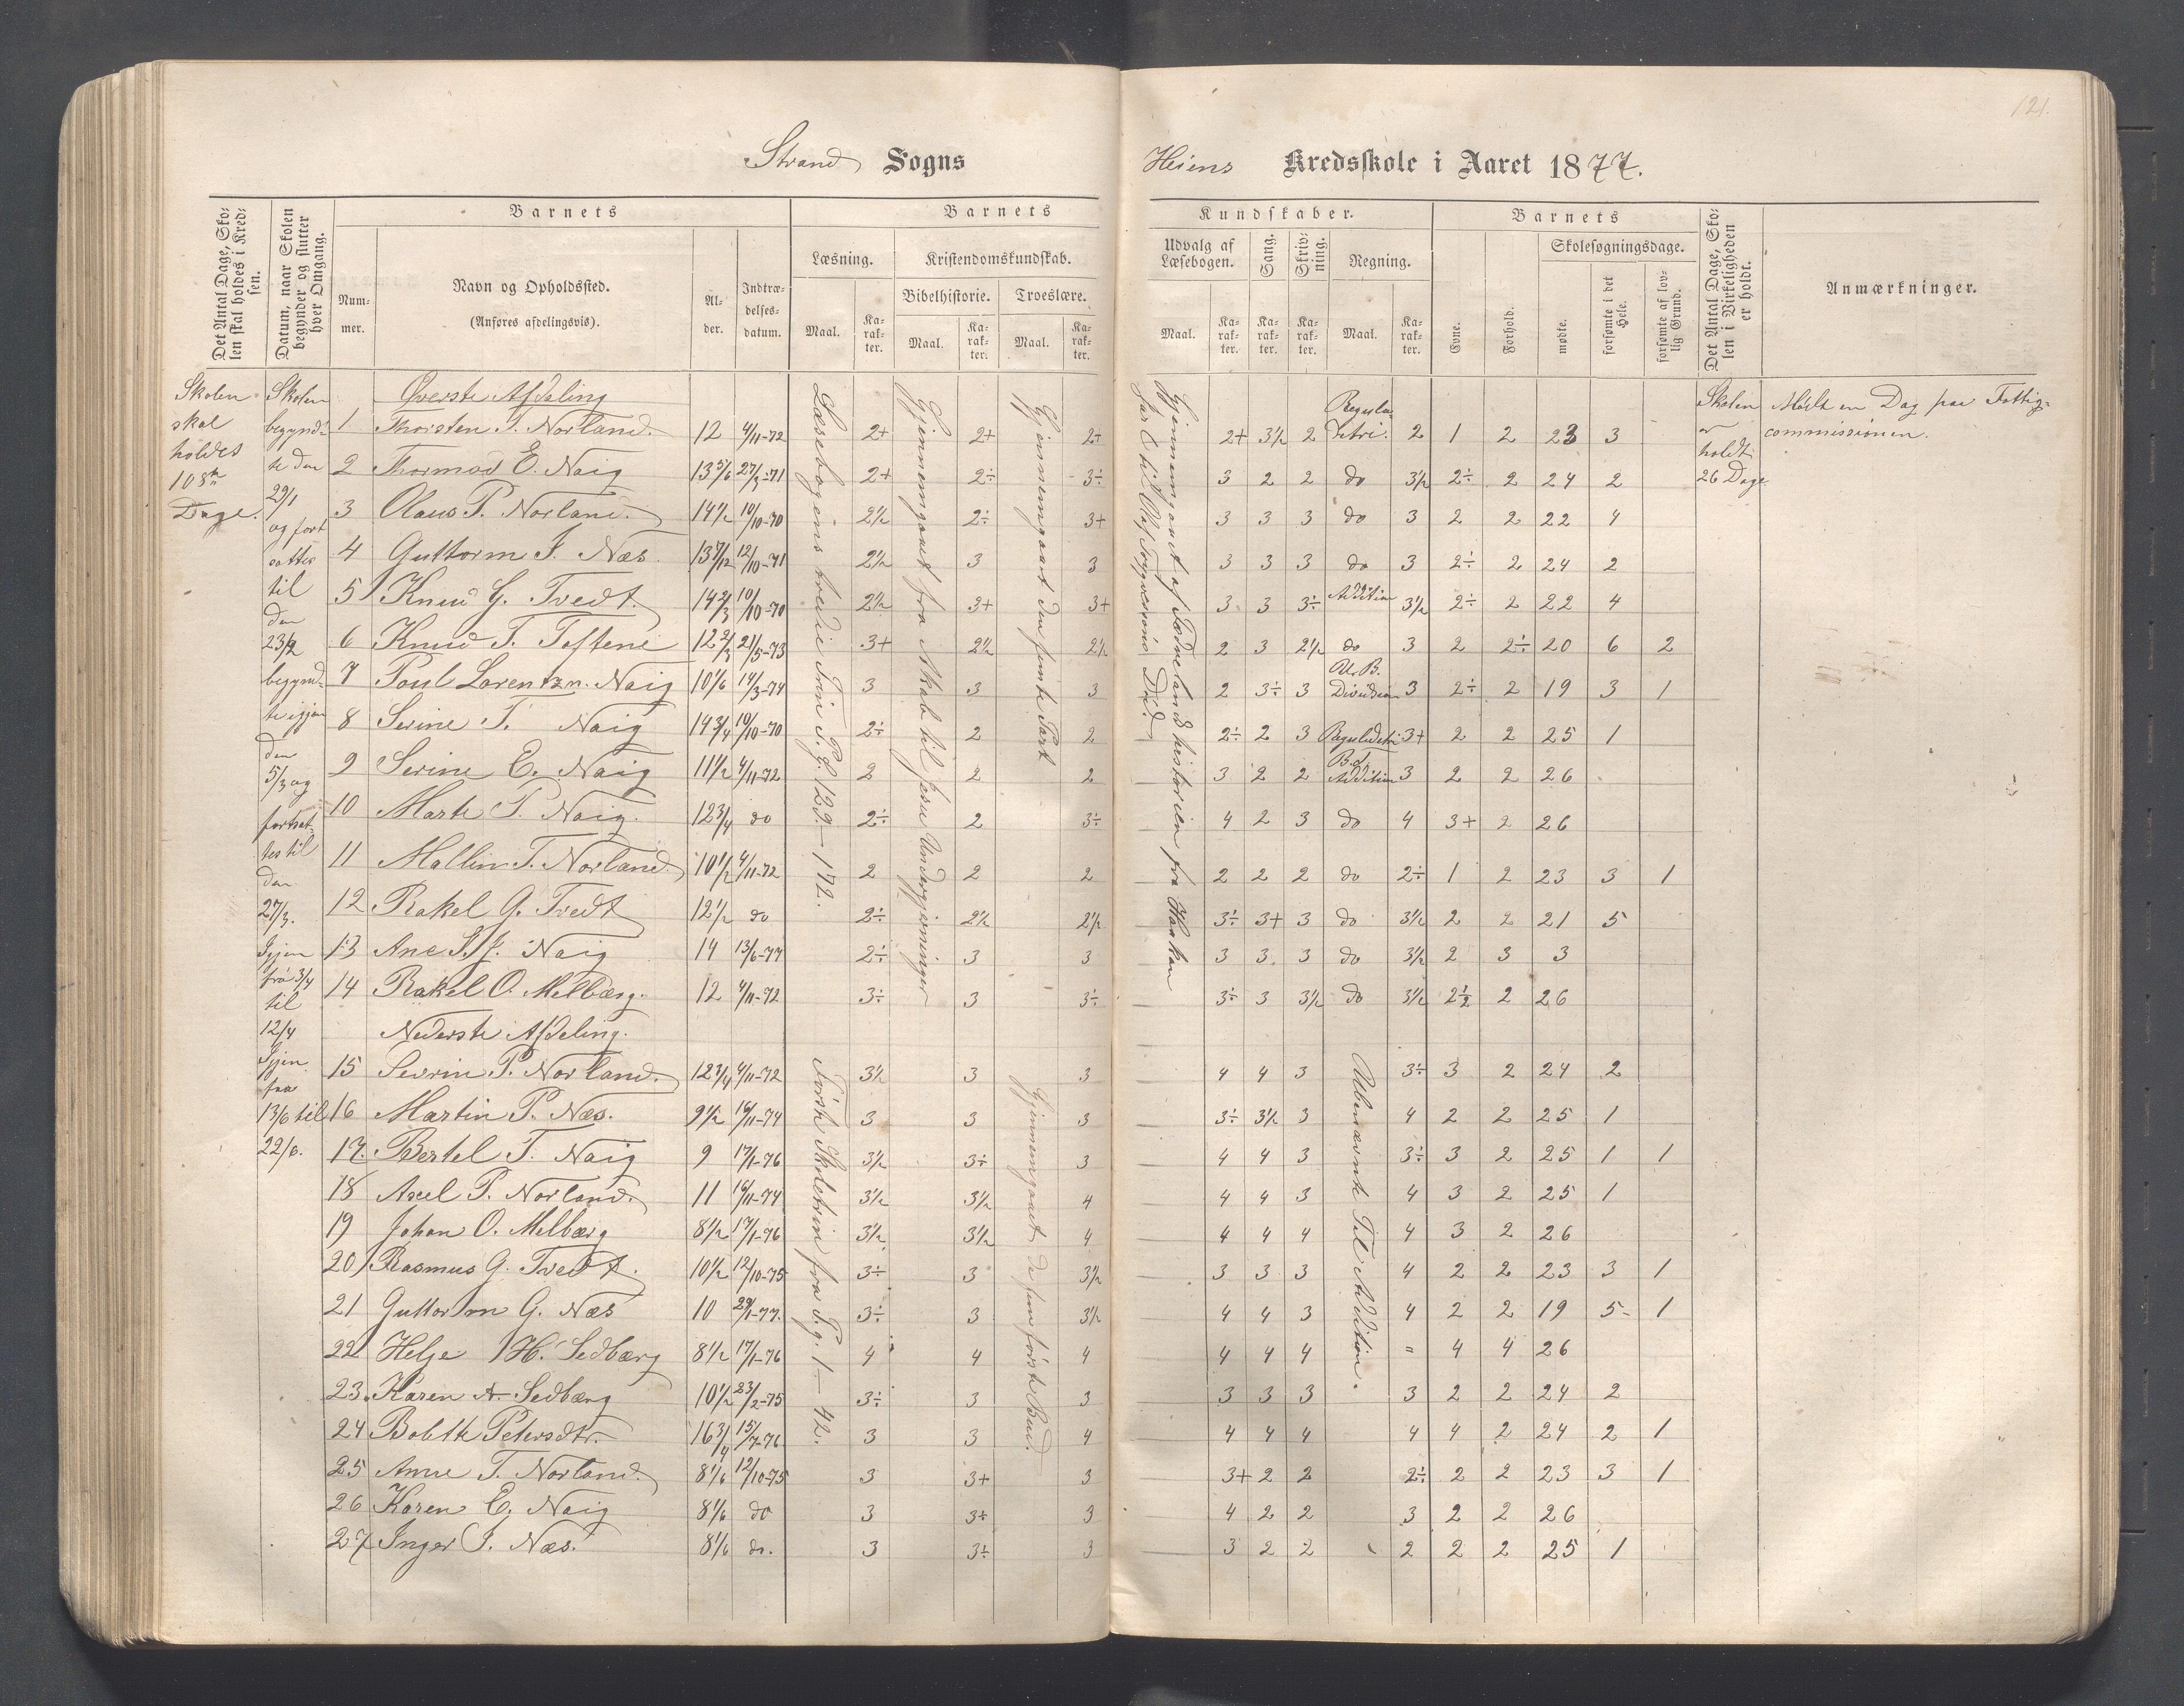 121.
Strand Sogns
Heiens Kredsskole i Aaret 1877.
Det Antal Dage, Skolen skal holdes i Kredsen.
Datum, naar Skolen begynder og slutter hver Omgang.
Barnets
Nummer.
Navn og Opholdssted.
(Anføres afdelingsvis).
Alder.
Indtrædelsesdatum.
Barnets
Læsning.
Kristendomskundskab.
Bibelhistorie.
Troeslære.
Maal.
Karakter.
Maal.
Karakter.
Maal.
Karakter.
Kundskaber.
Udvalg af Læsebogen.
Sang.
Skrivning.
Regning.
Maal.
Karakter.
Karakter.
Karakter.
Maal.
Karakter.
Barnets
Evne.
Forhold.
Skolesøgningsdage.
mødte.
forsømte i det Hele.
forsømte af lovlig Grund.
Det Antal Dage, Skolen i Virkeligheden er holdt.
Anmærkninger.
Skolen
skal
holdes
108
Dage.
Skolen
begynd-
te den
29/1
og fort
sattes
til
den
23/2
begynd-
te igjen
den
5/3 og
fortsat-
tes til
den
27/3.
Igjen
fra 3/4
til
12/4
Igjen
fra
13/6 til
22/6.
Øverste Afdeling
1 Thorsten T. Norland. 12 4/11-72 2+ 2+ 2+ 2+ 3½ 2 Regula detri. 2 1 2 23 3
2 Thormod E. Naig 13 5/6 27/3-71 2+ 2÷ 3÷ 3 2 2 do 3½ 2÷ 2 24 2
3 Olaus P. Norland. 14½ 10/10-70 2½ 2÷ 3+ 3 3 3 do 3 2 2 22 4
4 Guttorm J. Næs. 13 7/12 12/10-71 2½ 3 3 3 3 3 do 3 2÷ 2 24 2
5 Knud G. Tvedt. 14 2/3 10/10-70 2½ 3+ 3+ 3 3 3÷ Addition 3½ 2÷ 2 22 4
6 Knud T. Toftene 12 2/3 21/5-73 3+ 2½ 2½ 2 3 2½ do 3 2 2÷ 20 6 2
7 Poul Lorentzn. Naig 10 1/6 14/3-74 3 3 3 2 3÷ 3 U. B. Division 3 2÷ 2 19 3 1
8 Serine T. Naig 14 3/4 10/10-70 2÷ 2 2 2÷ 2 3 Reguladetri 3+ 2 2 25 1
9 Serine E. Naig 11½ 4/11-72 2 2 2 3 2 2 B. d. Addition 3 2 2 26
10 Marte P. Naig. 12 3/4 do 2÷ 2 3÷ 4 2 3 do 4 3+ 2 26
11 Mallin T. Norland. 10½ 4/11-72 2 2 2 2 2 2 do 2÷ 1 2 23 3 1
12 Rakel G. Tvedt 12½ do 2÷ 2½ 2½ 3÷ 3+ 3 do 3½ 2 2 21 5
13 Ane S. J. Naig 14 13/6-77 2÷ 3 3 3 3 3 do 3½ 2 3 3
14 Rakel O. Melbærg. 12 4/11-72 3÷ 3 3÷ 3÷ 3 3½ do 3½ 2½ 2 26
Nederste Afdeling.
15 Sevrin P. Norland. 12 3/4 4/11-72 3½ 3 3 4 4 3 3÷ 3 2 24 2
16 Martin P. Næs. 9½ 16/11-74 3 3 3 3÷ 3½ 3 4 2 2 25 1
17. Bertel T. Naig 9 17/1-76 3½ 3÷ 3 4 4 3 3÷ 3 2 25 1 1
18 Axel P. Norland. 11 16/11-74 3½ 3½ 4 4 4 3 4 3 2 25 1
19 Johan O. Melbærg 8½ 17/1-76 3½ 3½ 4 4 4 4 4 3 2 26
20 Rasmus G. Tvedt. 10½ 12/10-75 3÷ 3 3½ 3 3 3 4 2 2 23 3 1
21 Guttorm G. Næs 10 29/1-77. 3÷ 3 3½ 4 4 3 4 2 2 19 5 1
22 Helge H. Sedbærg 8½ 17/1-76 4 4 4 4 4 4 " 4 4 26
23. Karen A. Sedbærg 10½ 23/2-75 3÷ 3 3 3 3 3 3 2 2 24 2
24 Bolette Petersdtr. 16 3/4 15/7-76 3 3 4 4 4 4 4 4 2 24 2 1
25 Anne T. Norland. 8 1/6 12/10-75 3 3+ 3 3+ 2 2 2÷ 2 2 23 3 1
26 Karen E. Naig 8 1/6 do 3 3÷ 3 4 2 2 3 2 2 26
27 Inger J. Næs. 8 1/6 do. 3 3÷ 3 3 2 2 2 2 2 25 1
Læsebogens tredie Trin P. g. 129 - 172.
Gjennemgaaet fra Skab til Jesu Undergjerninger
Gjennemgaaet den femte Part
Gjennemgaaet af Fædrelandshistorien fra Haakon
Jarl til Olaf Trygvesøns Død.
Første Skoletrin fra P. g. 1 - 42.
Gjennemgaaet de fem første Bud.
Ubenævnte Tal Addition.
Skolen
er
holdt
26 Dage
Mødt en Dag paa Fattig-
commissionen.